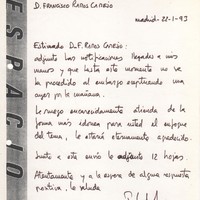 D. FRANCISCO RAPOS CARREJO
madrid- 22-1-93
Estimado D. F. RAPOS CARREJO:
adjunto las notificaciones llegadas a mis
manos y que hasta este momento no se
ha procedido al embargo capturando una
ayer por la mañana.
Le ruego encarecidamente atienda de la
forma más idónea para usted el enfoque
del tema, le estaré eternamente agradecido.
Junto a este envío le adjunto 12 hojas.
Atentamente y a la espera de alguna respuesta
positiva, le saluda
ESPACIO